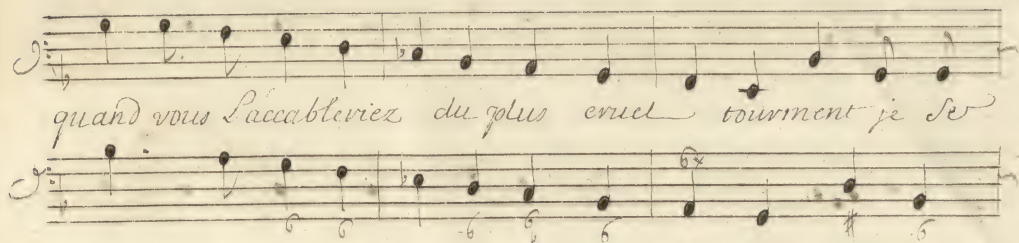 quand vous L'accableriez du plus cruel tourment je se
6 6 6 6 6 6x # 6